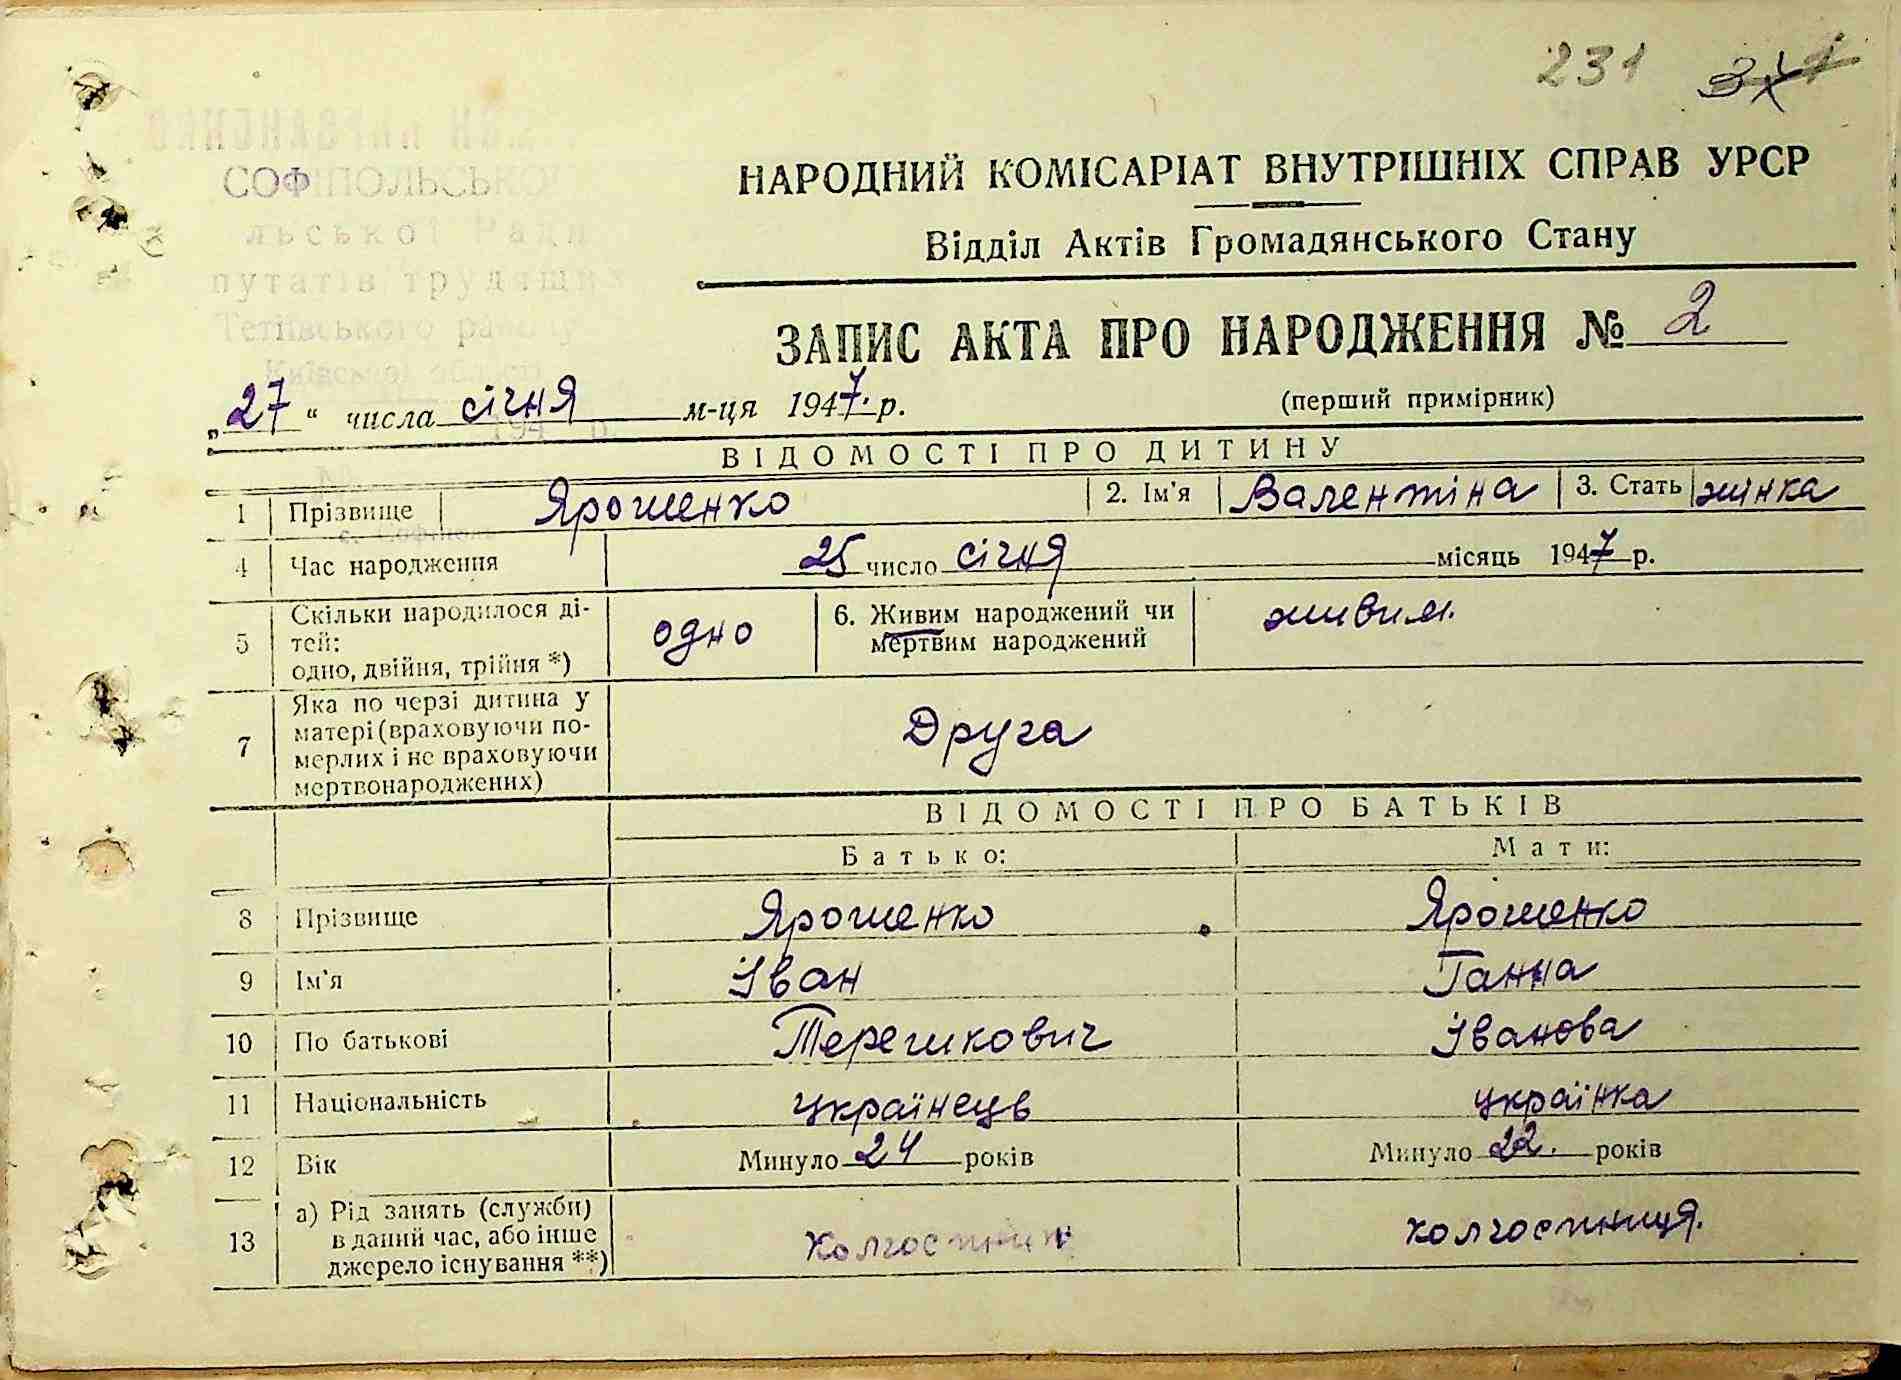 231
НАРОДНИЙ КОМІСАРІАТ ВНУТРІШНІХ СПРАВ УРСР
Відділ Актів Громадянського Стану
СОФІПОЛЬСЬКОЇ
льської Ради
путатів трудящих
Тетіївського району
Київської області
ЗАПИС АКТА ПРО НАРОДЖЕННЯ № 2
(перший примірник)
„27“ числа січня м-ця 1947 р.
ВІДОМОСТІ ПРО ДИТИНУ
1 Прізвище Ярошенко 2. Ім'я Валентіна 3. Стать жінка
4 Час народження 25 число січня місяць 1947 р.
5 Скільки народилося ді-
тей:
одно, двійня, трійня *) одно 6. Живим народжений чи
мертвим народжений живим.
7 Яка по черзі дитина у
матері (враховуючи по-
мерлих і не враховуючи
мертвонароджених) Друга
ВІДОМОСТІ ПРО БАТЬКІВ
Батько: Мати:
8 Прізвище Ярошенко Ярошенко
9 Ім'я Іван Ганна
10 По батькові Терешкович Іванова
11 Національність українець українка
12 Вік Минуло 24 років Минуло 22. років
13 а) Рід занять (служби)
в даний час, або інше
джерело існування **) Колгоспник колгоспниця.